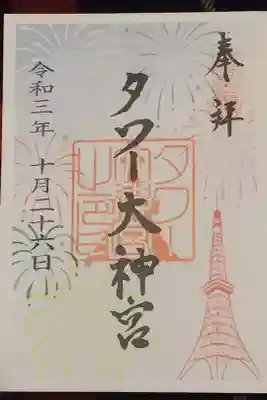 奉拝
タワー大神宮
令和三年 十月二十六日